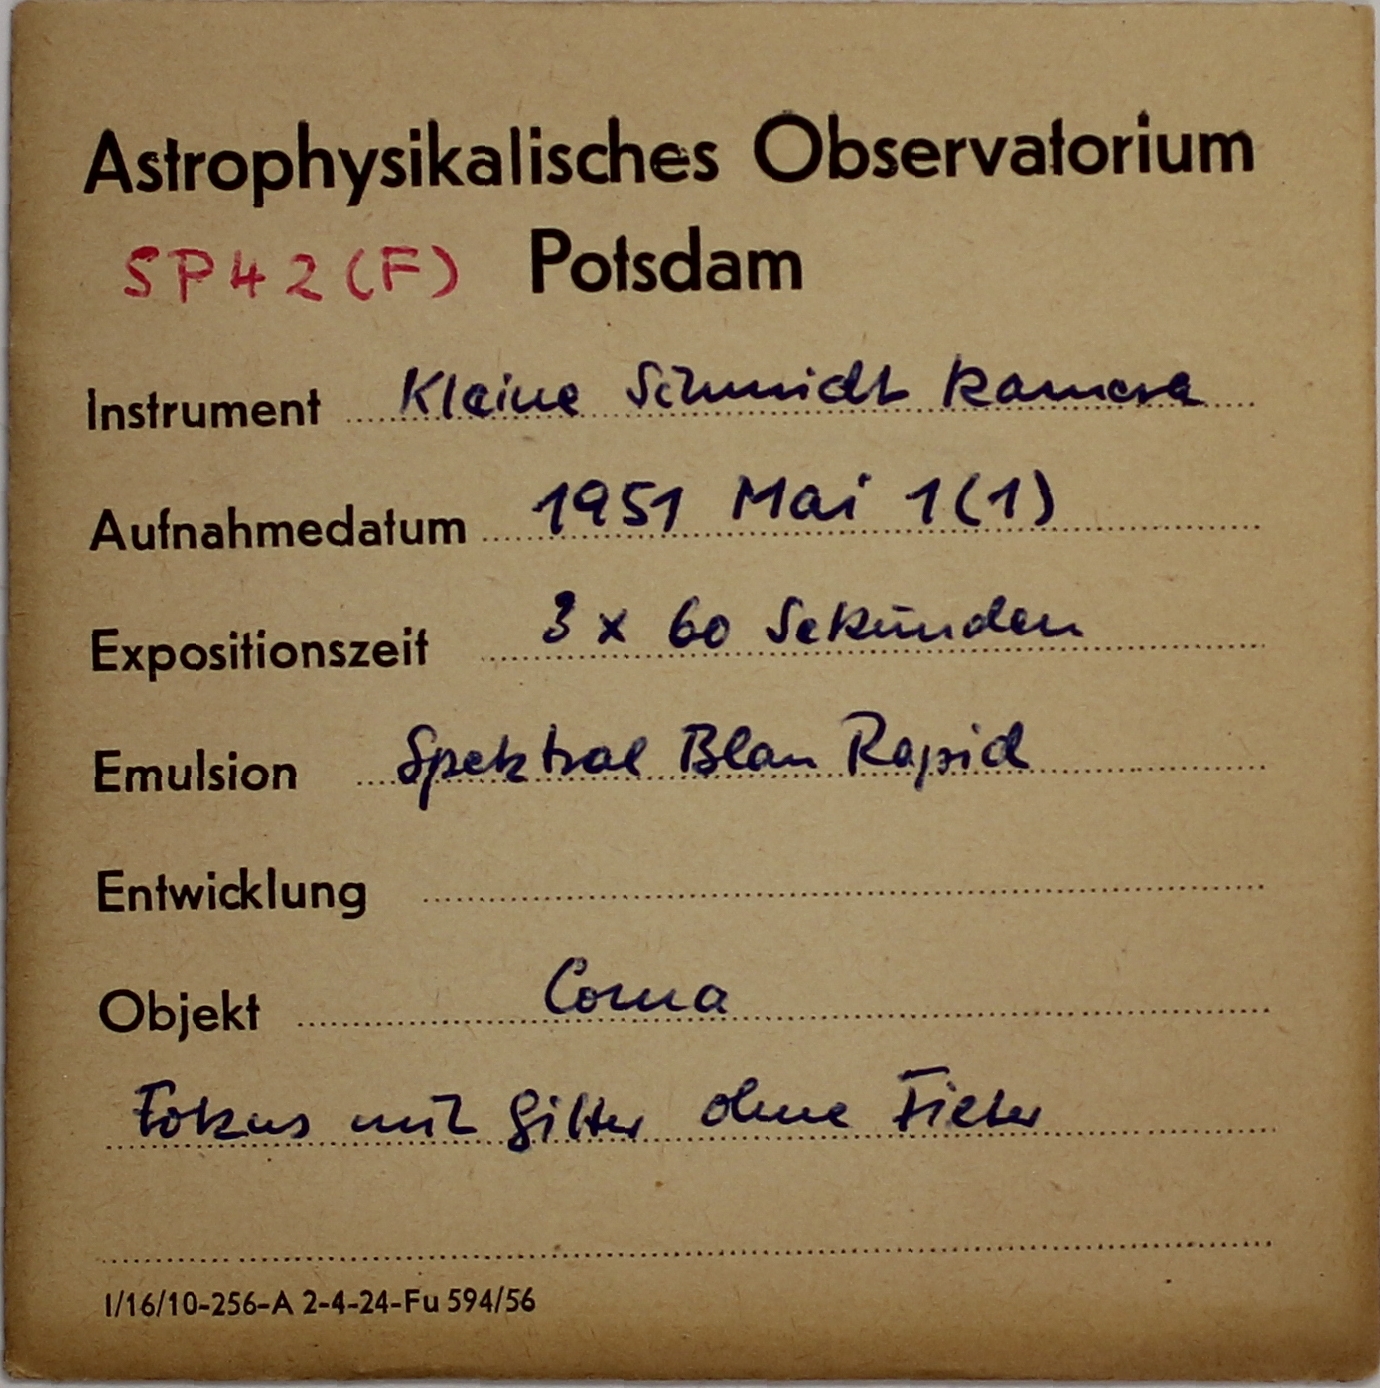 Astrophysikalisches Observatorium
SP42(F) Potsdam
Instrument Kleine Schmidt Kamera
Aufnahmedatum 1951 Mai 1(1)
Expositionszeit 3 x 60 Sekunden
Emulsion Spektral Blau Rapid
Entwicklung
Objekt Coma
Fokus mit Gitter ohne Filter
I/16/10-256-A 2-4-24-Fu 594/56